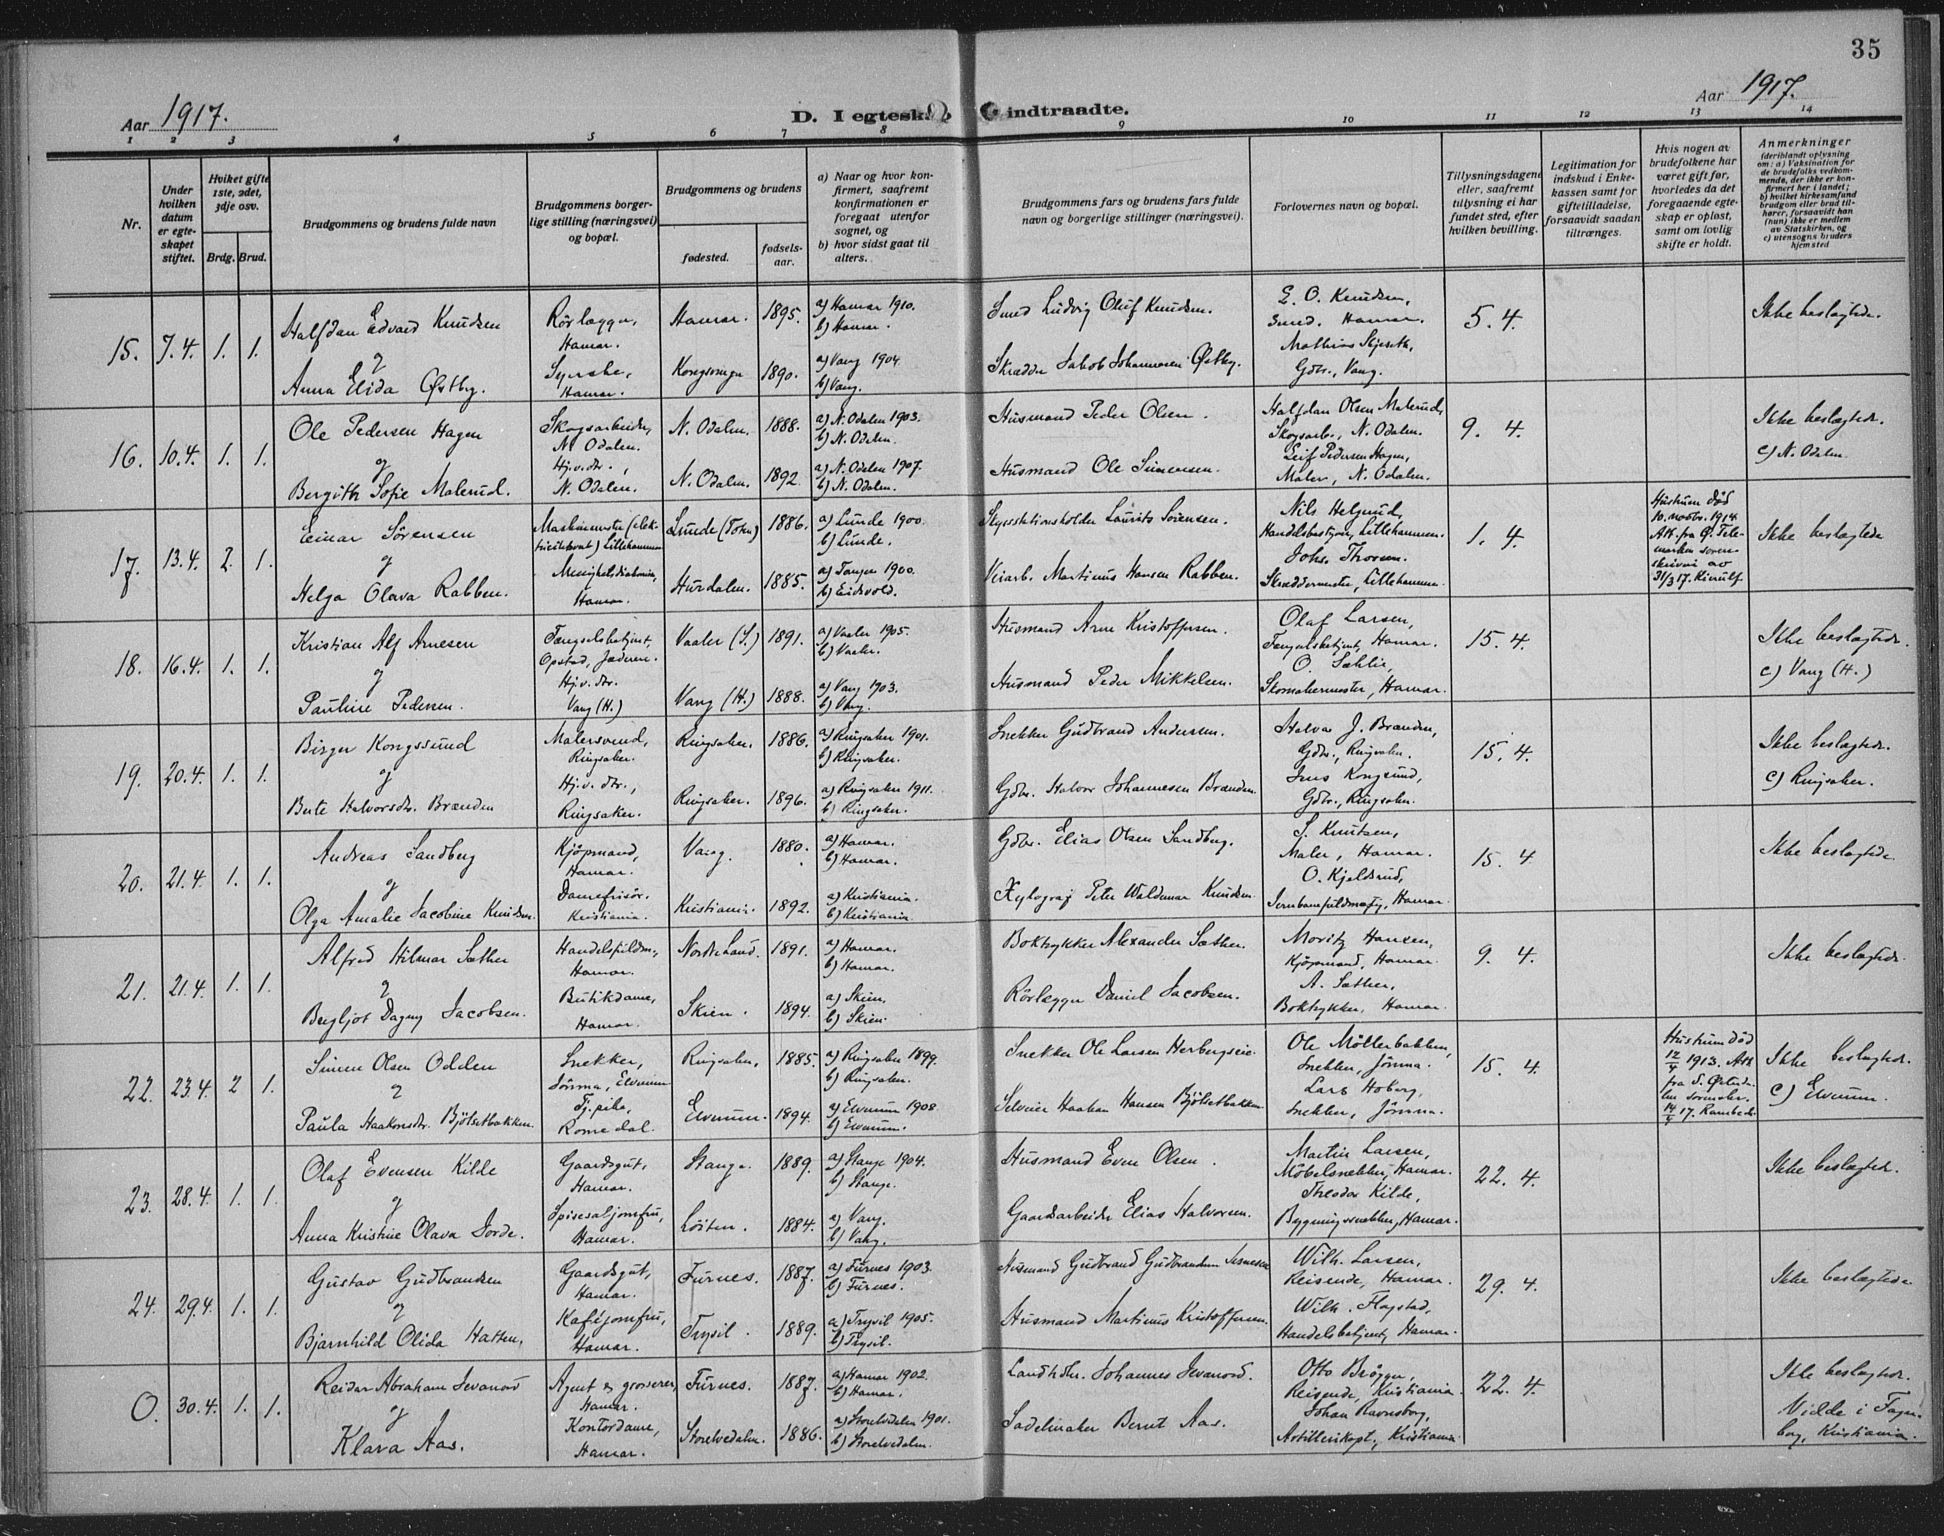 35
Aar 1917.
D. I egtesk indtraadte.
Aar 1917.
1 2 3 4 5 6 7 8 9 10 11 12 13 14
Nr.
Under hvilken datum er egteskapet stiftet.
Hvilket gifte 1ste, 2det, 3dje osv.
Brdg. Brud.
Brudgommens og brudens fulde navn
Brudgommens borgerlige stilling (næringsvei) og bopæl.
Brudgommens og brudens
fødested.
fødselsaar.
a) Naar og hvor konfirmert, saafremt konfirmationen er foregaat utenfor sognet, og
b) hvor sidst gaat til alters.
Brudgommens fars og brudens fars fulde navn og borgerlige stillinger (næringsvei).
Forlovernes navn og bopæl.
Tillysningsdagene eller, saafremt tillysning ei har fundet sted, efter hvilken bevilling.
Legitimation for indskud i Enkekassen samt for giftetilladelse, forsaavidt saadan tiltrænges.
Hvis nogen av brudefolkene har været gift før, hvorledes da det foregaaende egteskap er opløst, samt om lovlig skifte er holdt.
Anmerkninger
(deriblandt oplysning om: a) Vaksination for de brudefolks vedkommende, der ikke er konfirmert her i landet; b) hvilket kirkesamfund brudgom eller brud tilhører, forsaavidt han (hun) ikke er medlem av Statskirken, og c) utensogns bruders hjemsted
15. 7.4. 1. 1. Halfdan Edvard Knudsen Rörlægger, Hamar. Hamar. 1895. a) Hamar 1910. b) Hamar. Smed Ludvig Oluf Knudsen. E. O. Knudsen, Smed. Hamar. 5. 4. Ikke beslægtede.
og
Anna Elida Østby. Syerske, Hamar. Kongsvinger 1890. a) Vang 1904 b) Vang. Skrædder Jakob Johannesen Østby. Mathias Skjeseth, Gdbr., Vang.
16. 10.4. 1. 1. Ole Pedersen Hagen Skogsarbeider, N. Odalen. N. Odalen. 1888. a) N. Odalen 1903. b) N. Odalen. Husmand Peder Olsen. Halfdan Olsen Malerud, Skogsarb., N. Odalen. 9. 4. Ikke beslægtede.
og
Bergith Sofie Malerud. Hj.v.dtr., N. Odalen. N. Odalen. 1892. a) N. Odalen 1907. b) N. Odalen. Husmand Ole Simensen. Leif Pedersen Hagen, Maler, N. Odalen. c) N. Odalen.
17. 13.4. 2. 1. Einar Sörensen Maskinmester (elektricitetsverk) Lillehammer Lunde (Telem) 1886. a) Lunde 1900. b) Lunde. Skysstationsholder Laurits Sörensen. Nils Helgrud, Handelsbestyrer, Lillehammer. 1. 4. Hustruen död 10. novbr. 1914 Att. fra Ø. Telemarken sorenskriveri av 31/3 17. Kierulf Ikke beslægtede
og
Helga Olava Rabben. Menighetsdiakonisse, Hamar. Hurdalen. 1885. a) Tangen 1900. b) Eidsvold. Veiarb. Martinus Hansen Rabben. Johs. Thorsen. Skræddermester, Lillehammer.
18. 16.4. 1. 1. Kristian Alf Arnesen Fængselsbetjent, Opstad, Jæderen. Vaaler (S.) 1891. a) Vaaler 1905. b) Vaaler. Husmand Arne Kristoffersen. Olaf Larsen, Fængselsbetjent, Hamar. 15. 4. Ikke beslægtede.
og
Pauline Pedersen. Hj.v.dtr. Vang (H.) Vang (H.) 1888. a) Vang 1903. b) Vang. Husmand Peder Mikkelsen. O. Sæhlie, Skomakermester, Hamar. c) Vang (H.)
19. 20.4. 1. 1. Birger Kongssund Malersvend, Ringsaker. Ringsaker. 1886. a) Ringsaker 1901. b) Ringsaker. Snekker Gudbrand Andersen. Halvor J. Brænden, Gdbr., Ringsaker. 15. 4. Ikke beslægtede.
og
Berte Halvorsdr. Brænden Hj.v.dtr., Ringsaker. Ringsaker. 1896. a) Ringsaker 1911. b) Ringsaker. Gdbr. Halvor Johannesen Brænden. Jens Kongsund, Gdbr., Ringsaker. c) Ringsaker.
20. 21.4. 1. 1. Andreas Sandberg Kjöpmand, Hamar. Vang. 1880. a) Hamar. b) Hamar. Gdbr. Elias Olsen Sandberg. S. Knutsen, Maler, Hamar. 15. 4. Ikke beslægtede.
og
Olga Amalie Jacobine Knudsen Damefrisör, Kristiania. Kristiania. 1892. a) Kristiania. b) Kristiania Xylograf Peter Waldemar Knudsen O. Kjelsrud, Jernbanefuldmægtig, Hamar.
21. 21.4. 1. 1. Alfred Hilmar Sæther Handelsfuldm., Hamar. Nordre Land. 1891. a) Hamar. b) Hamar. Boktrykker Alexander Sæther. Moritz Hansen, Kjöpmand, Hamar. 9. 4. Ikke beslægtede.
og
Bergljot Dagny Jacobsen. Butikdame, Hamar. Skien. 1894. a) Skien. b) Skien. Rörlægger Daniel Jacobsen. A. Sæther, Boktrykker, Hamar.
22. 23.4. 2 1. Simen Olsen Odden Snekker, Jömna, Elverum Ringsaker. 1885. a) Ringsaker 1899. b) Ringsaker. Snekker Ole Larsen Herbergseie. Ole Möllerbakken, Snekker, Jömna. 15. 4. Hustruen död 12/4 1913. Att. fra S. Østerdalen sorenskr. 14/4 17. Rambech Ikke beslægtede.
og
Paula Haakonsdr. Bjölsetbakken. Tj.pike, Romedal. Elverum. 1894. a) Elverum 1908. b) Elverum. Selveier Haakon Hansen Bjölsetbakken Lars Hoberg, Snekker, Jömna. c) Elverum.
23. 28.4. 1. 1. Olaf Evensen Kilde Gaardsgut, Hamar. Stange. 1889. a) Stange 1904. b) Stange. Husmand Even Olsen. Martin Larsen, Möbelsnekker, Hamar. 22. 4. Ikke beslægtede.
og
Anna Kristine Olava Jorde. Spisesaljomfru, Hamar. Löiten. 1884. a) Vang. b) Vang. Gaardsarbeider Elias Halvorsen. Theodor Kilde, Bygningssnekker, Hamar.
24. 29.4. 1. 1. Gustav Gudbrandsen Gaardsgut, Hamar. Furnes. 1887. a) Furnes 1903. b) Furnes. Husmand Gudbrand Gudbrandsen Wilh. Larsen, Reisende, Hamar. 29. 4. Ikke beslægtede
og
Bjarnhild Olida Hatten, Kaféjomfru, Hamar. Trysil. 1889. a) Trysil 1905. b) Trysil. Husmand Martinus Kristoffersen. Wilh. Flagstad, Handelsbetjent, Hamar.
O. 30.4. 1. 1. Reidar Abraham Jevanord Agent & grosserer, Hamar. Furnes. 1887. a) Hamar 1902. b) Hamar. Landhdlr. Johannes Jevanord. Otto Brögger, Reisende, Kristiania. 22. 4. Ikke beslægtede.
og
Klara Aas. Kontordame, Hamar. Storelvedalen. 1886. a) Storelvedalen 1901. b) Storelvedalen. Sadelmaker Bernt Aas. Johan Ravnsborg, Artillerikapt., Kristiania Viedde i Fagerborg, Kristiania.